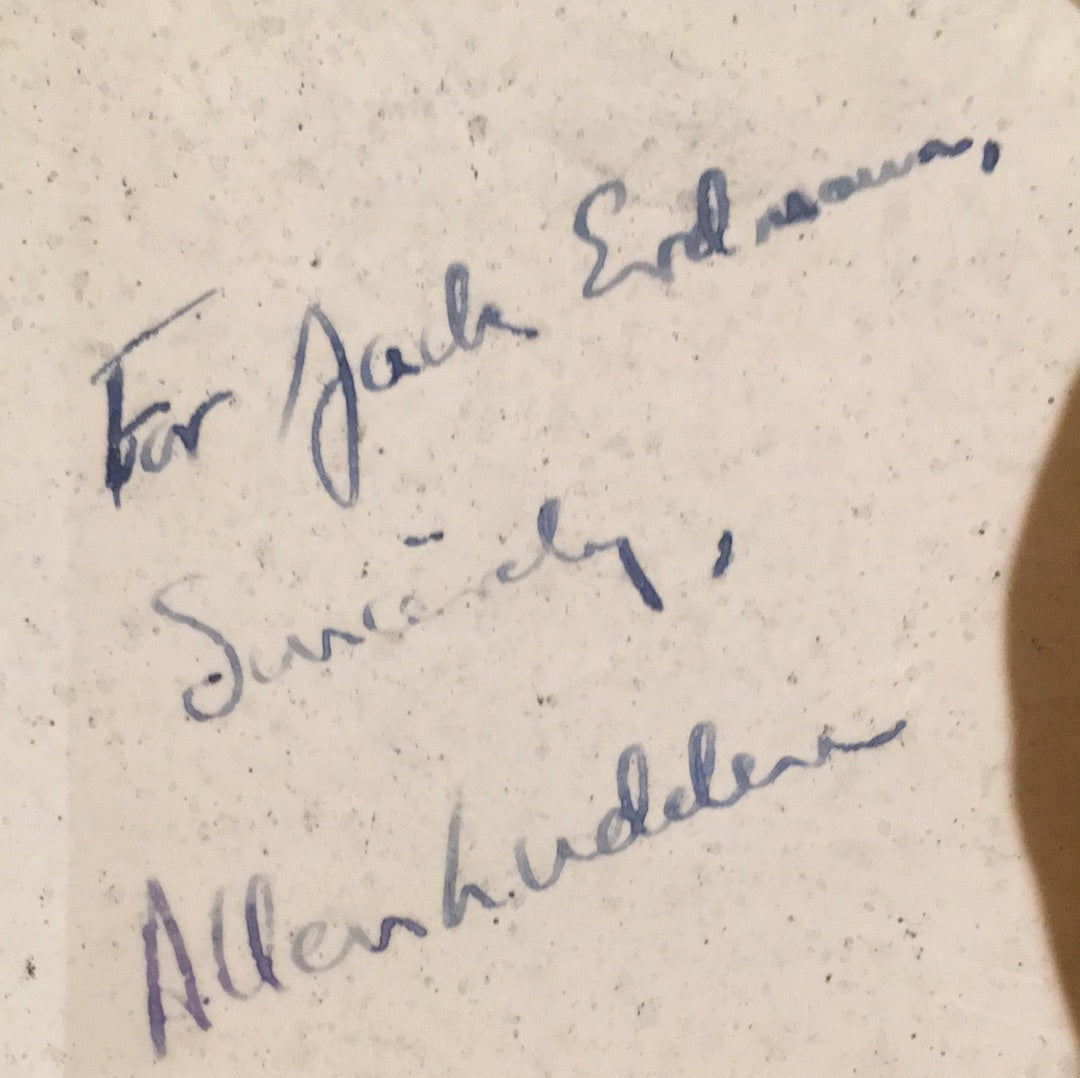 For Jack Erdmann,
Sincerely,
Allen Ludden